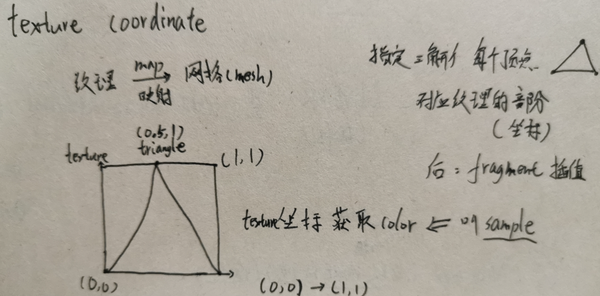 texture coordinate
纹理 map 映射 网格(mesh)
指定三角形 每个顶点
对应纹理的部分
(坐标)
后: fragment 插值
(0.5,1)
texture
triangle
(1,1)
texture坐标 获取 color ⇐ sample
(0,0)
(0,0) → (1,1)